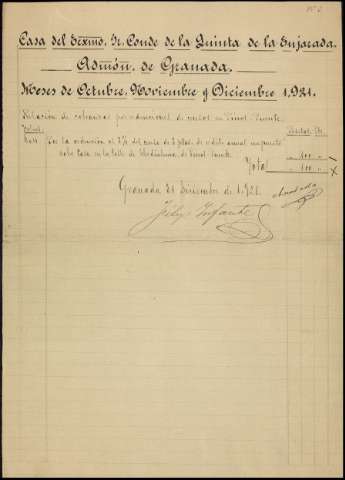 Nº 3
Casa del Excmo. Sr. Conde de la Quinta de la Enjarada.
Admón. de Granada.
Meses de Octubre, Noviembre y Diciembre 1.921.
Relación de cobranzas por redenciones de censos en Pinos-Puente.
Pesetas Cts.
Por la redención al % del censo de de rédito anual impuesto
sobre casa en la calle de de Pinos Puente
100
Total 100
Granada 31 Diciembre de 1.921.
Félix Infante